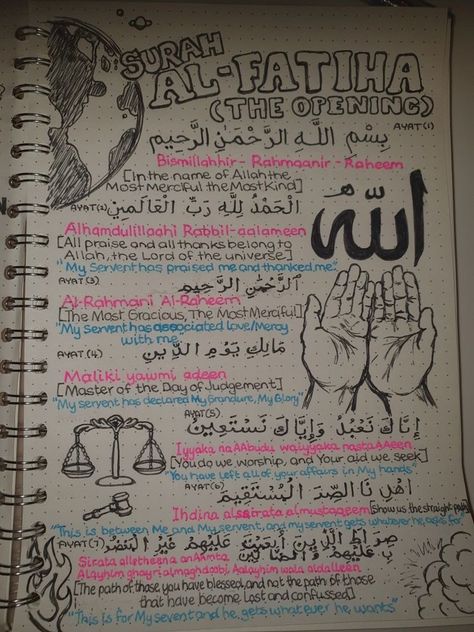 SURAH
AL-FATIHA
(THE OPENING)
AYAT(1)
بِسْمِ اللَّهِ الرَّحْمَٰنِ الرَّحِيمِ
Bismillahhir-Rahmaanir-Raheem
[In the name of Allah the
The Most Merciful the Most Kind]
اللّٰه
AYAT(2) الْحَمْدُ لِلَّهِ رَبِّ الْعَالَمِينَ
Alhamdulillaahi Rabbil-aalameen
[All praise and all thanks belong to
Allah, the Lord of the universe]
"My Servent has praised me and thanked me."
AYAT(3) الرَّحْمَٰنِ الرَّحِيمِ
Al-Rahmani Al-Raheem
[The Most Gracious, The Most Merciful]
"My servent has associated love/Mercy
with me"
AYAT.(4) مَالِكِ يَوْمِ الدِّينِ
Maliki yawmi adeen
[Master of the Day of Judgement]
"My servent has declared My Grandure, My Glory"
AYAT(5)
إِيَّاكَ نَعْبُدُ وَإِيَّاكَ نَسْتَعِينُ
Iyyaka naAAbudu waiyyaka nastaAAeen
[You do we worship, and Your aid we seek]
"You have left all of your affairs in My hands"
AYAT(6)
اهْدِنَا الصِّرَ الْمُسْتَقِيمَ
Ihdina alssirata almustaqeem [Show us the straight path]
"This is between Me and My servent, and my servent gets whatever he asks for"
AYAT(7) صِرَاطَ الَّذِينَ أَنْعَمْتَ عَلَيْهِمْ غَيْرِ الْمَغْضُو
بِ عَلَيْهِمْ وَلَا الضَّالِّينَ
Sirata allatheena anAAamta
AAalayhim ghayri almaghdoobi AAalayhim wala aldalleen
[The path of those you have blessed, and not the path of those
that have become Lost and confussed]
"This is for My sevent and he gets whatever he wants"